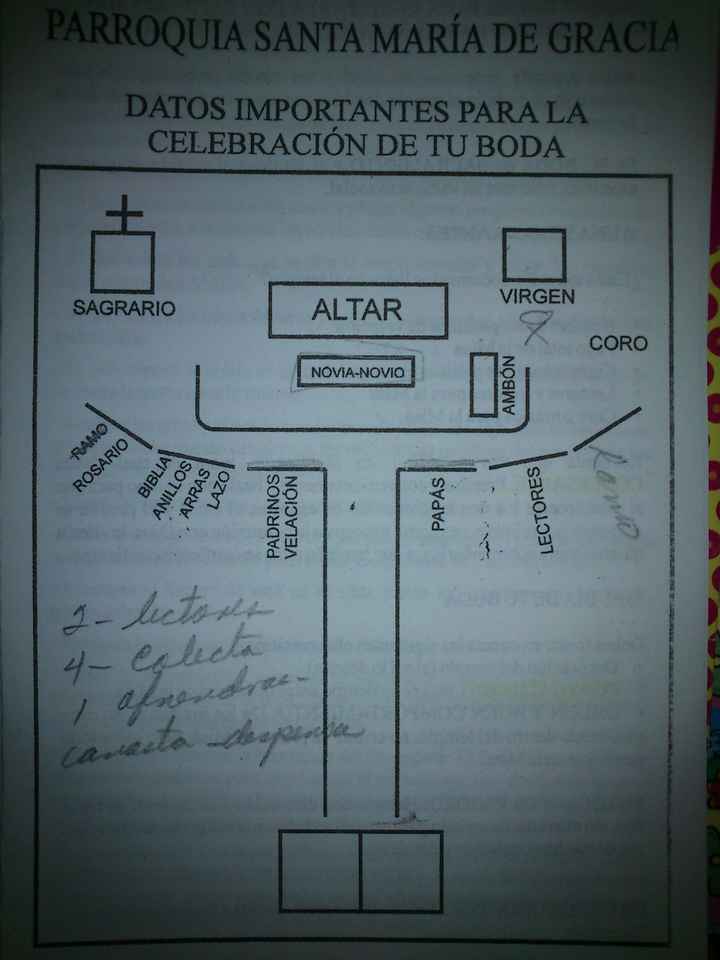 PARROQUIA SANTA MARÍA DE GRACIA
DATOS IMPORTANTES PARA LA
CELEBRACIÓN DE TU BODA
SAGRARIO
ALTAR
VIRGEN
CORO
NOVIA-NOVIO
AMBÓN
RAMO
ROSARIO
BIBLIA
ANILLOS
ARRAS
LAZO
PADRINOS
VELACIÓN
PAPÁS
LECTORES
Ramo
2- lectores
4- colecta
1 ofrendas-
canasta - despensa